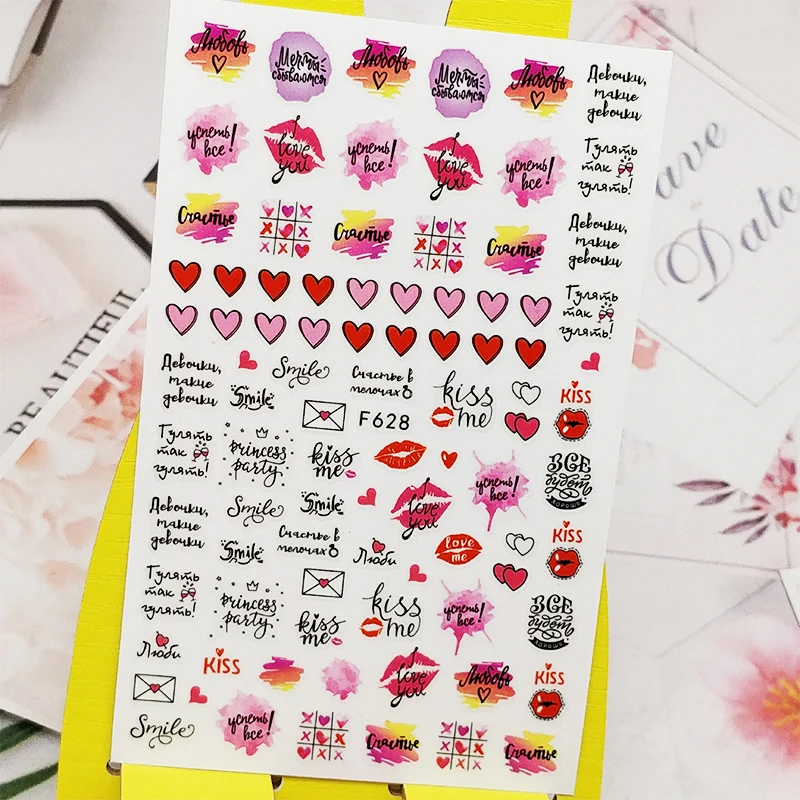 Любовь
Мечты
сбываются
Любовь
Мечты
сбываются
Любовь
Девочки,
такие
девочки
успеть
все!
I
love
you
успеть
все!
I
love
you
успеть
все!
Гулять
так
гулять!
Счастье
Счастье
Счастье
Девочки,
такие
девочки
Гулять
так
гулять!
Save
Date
BEAUTIFUL
Девочки,
такие
девочки
Smile
Smile
Счастье в
мелочах
F628
kiss
me
KISS
Гулять
так
гулять!
princess
party
kiss
me
I
love
you
успеть
все!
ВСЕ
будет
ХОРОШО
Девочки,
такие
девочки
Smile
Smile
Smile
Счастье в
мелочах
Люби
love
me
KISS
Гулять
так
гулять!
princess
party
kiss
me
kiss
me
успеть
все!
ВСЕ
будет
ХОРОШО
Люби
KISS
I
love
you
Любовь
KISS
Smile
успеть
все!
Счастье
Счастье